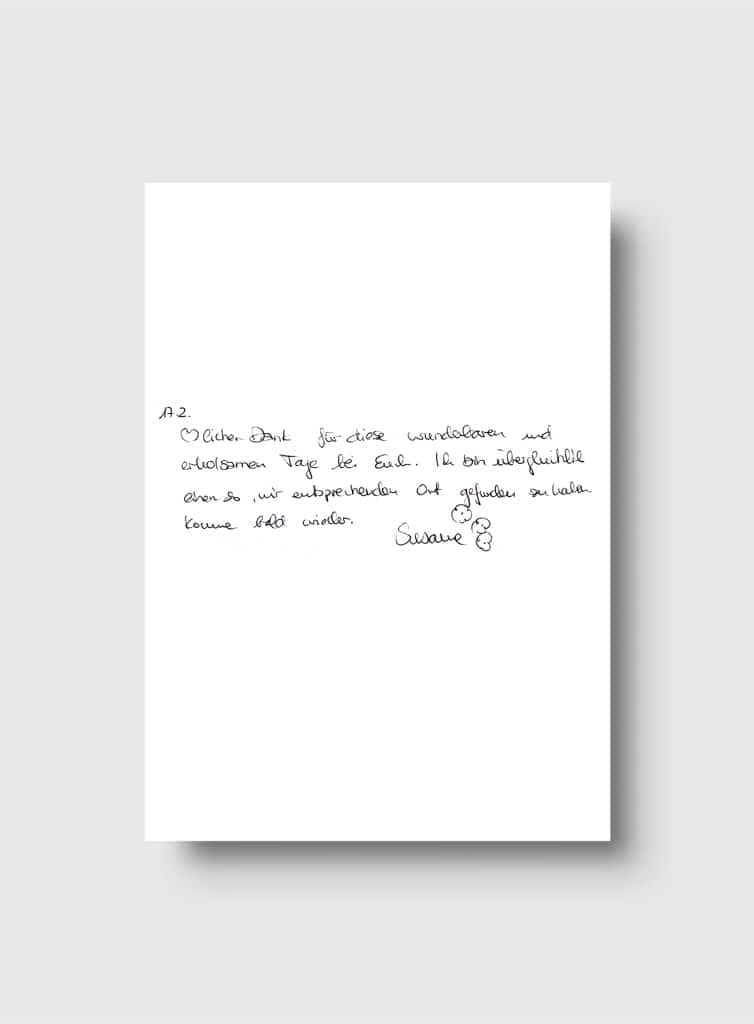 17.2.
♡licher Dank für diese wunderbaren und
erholsamen Tage bei Euch. Ich bin überglücklich
einen so, mir entsprechenden Ort gefunden zu haben
komme bald wieder.
Susanne